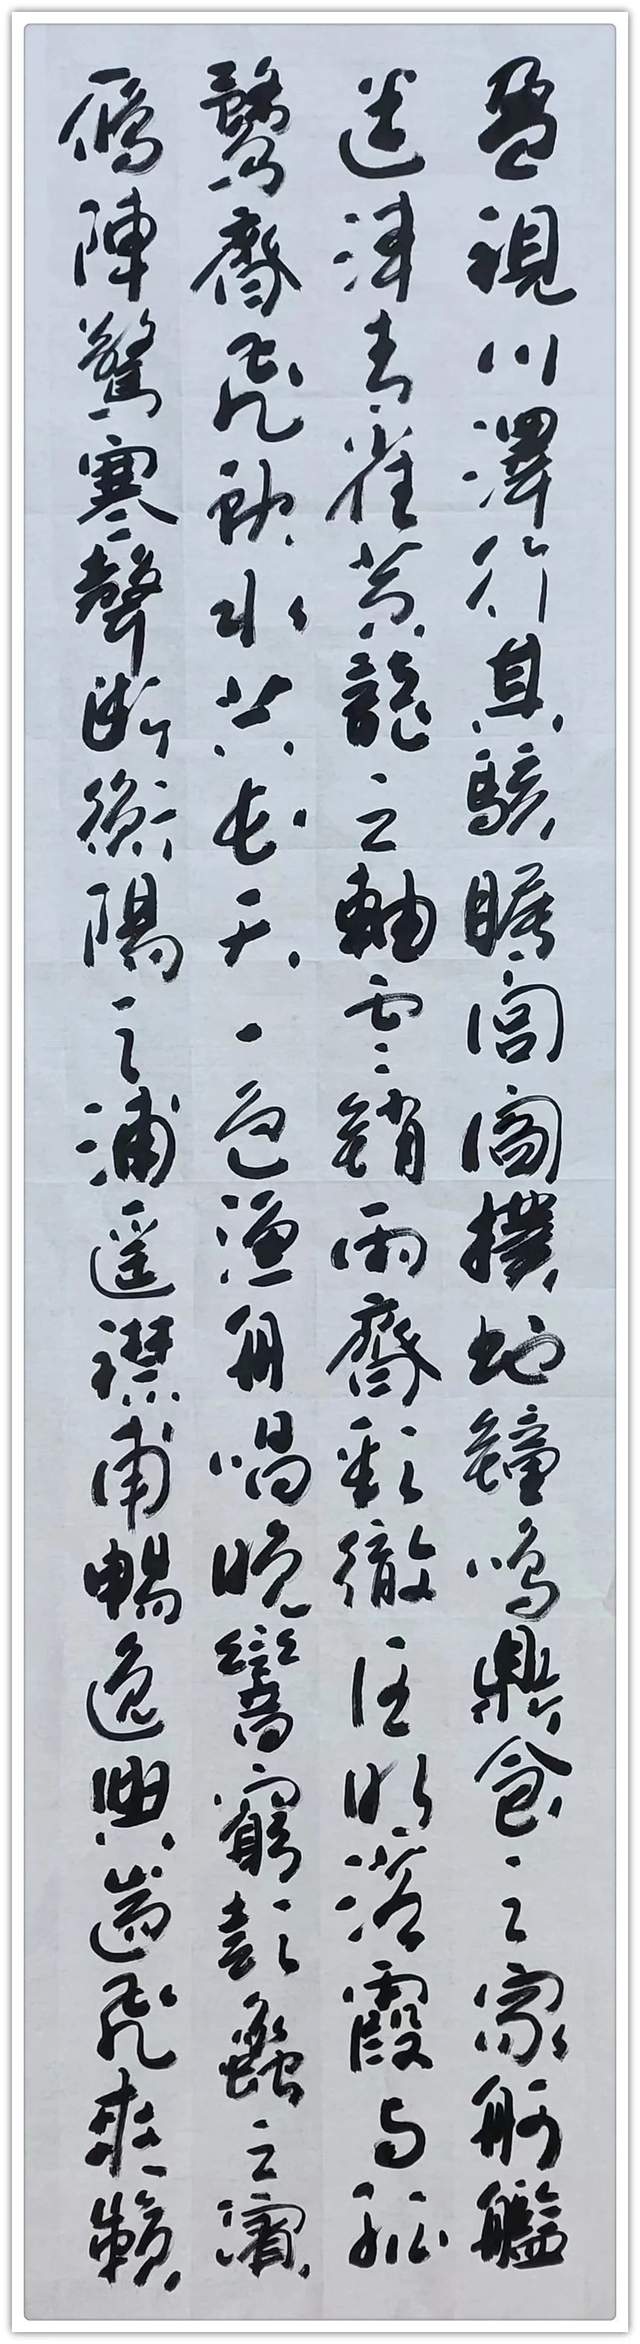 盈視川澤紆其駭矚閭閻撲地鐘鳴鼎食之家舸艦
迷津青雀黃龍之軸雲銷雨齊彩徹區明落霞與孤
鶩齊飛秋水共長天一色漁舟唱晚響窮彭蠡之濱
雁陣驚寒聲斷衡陽之浦遥襟甫暢逸興遄飛爽籟